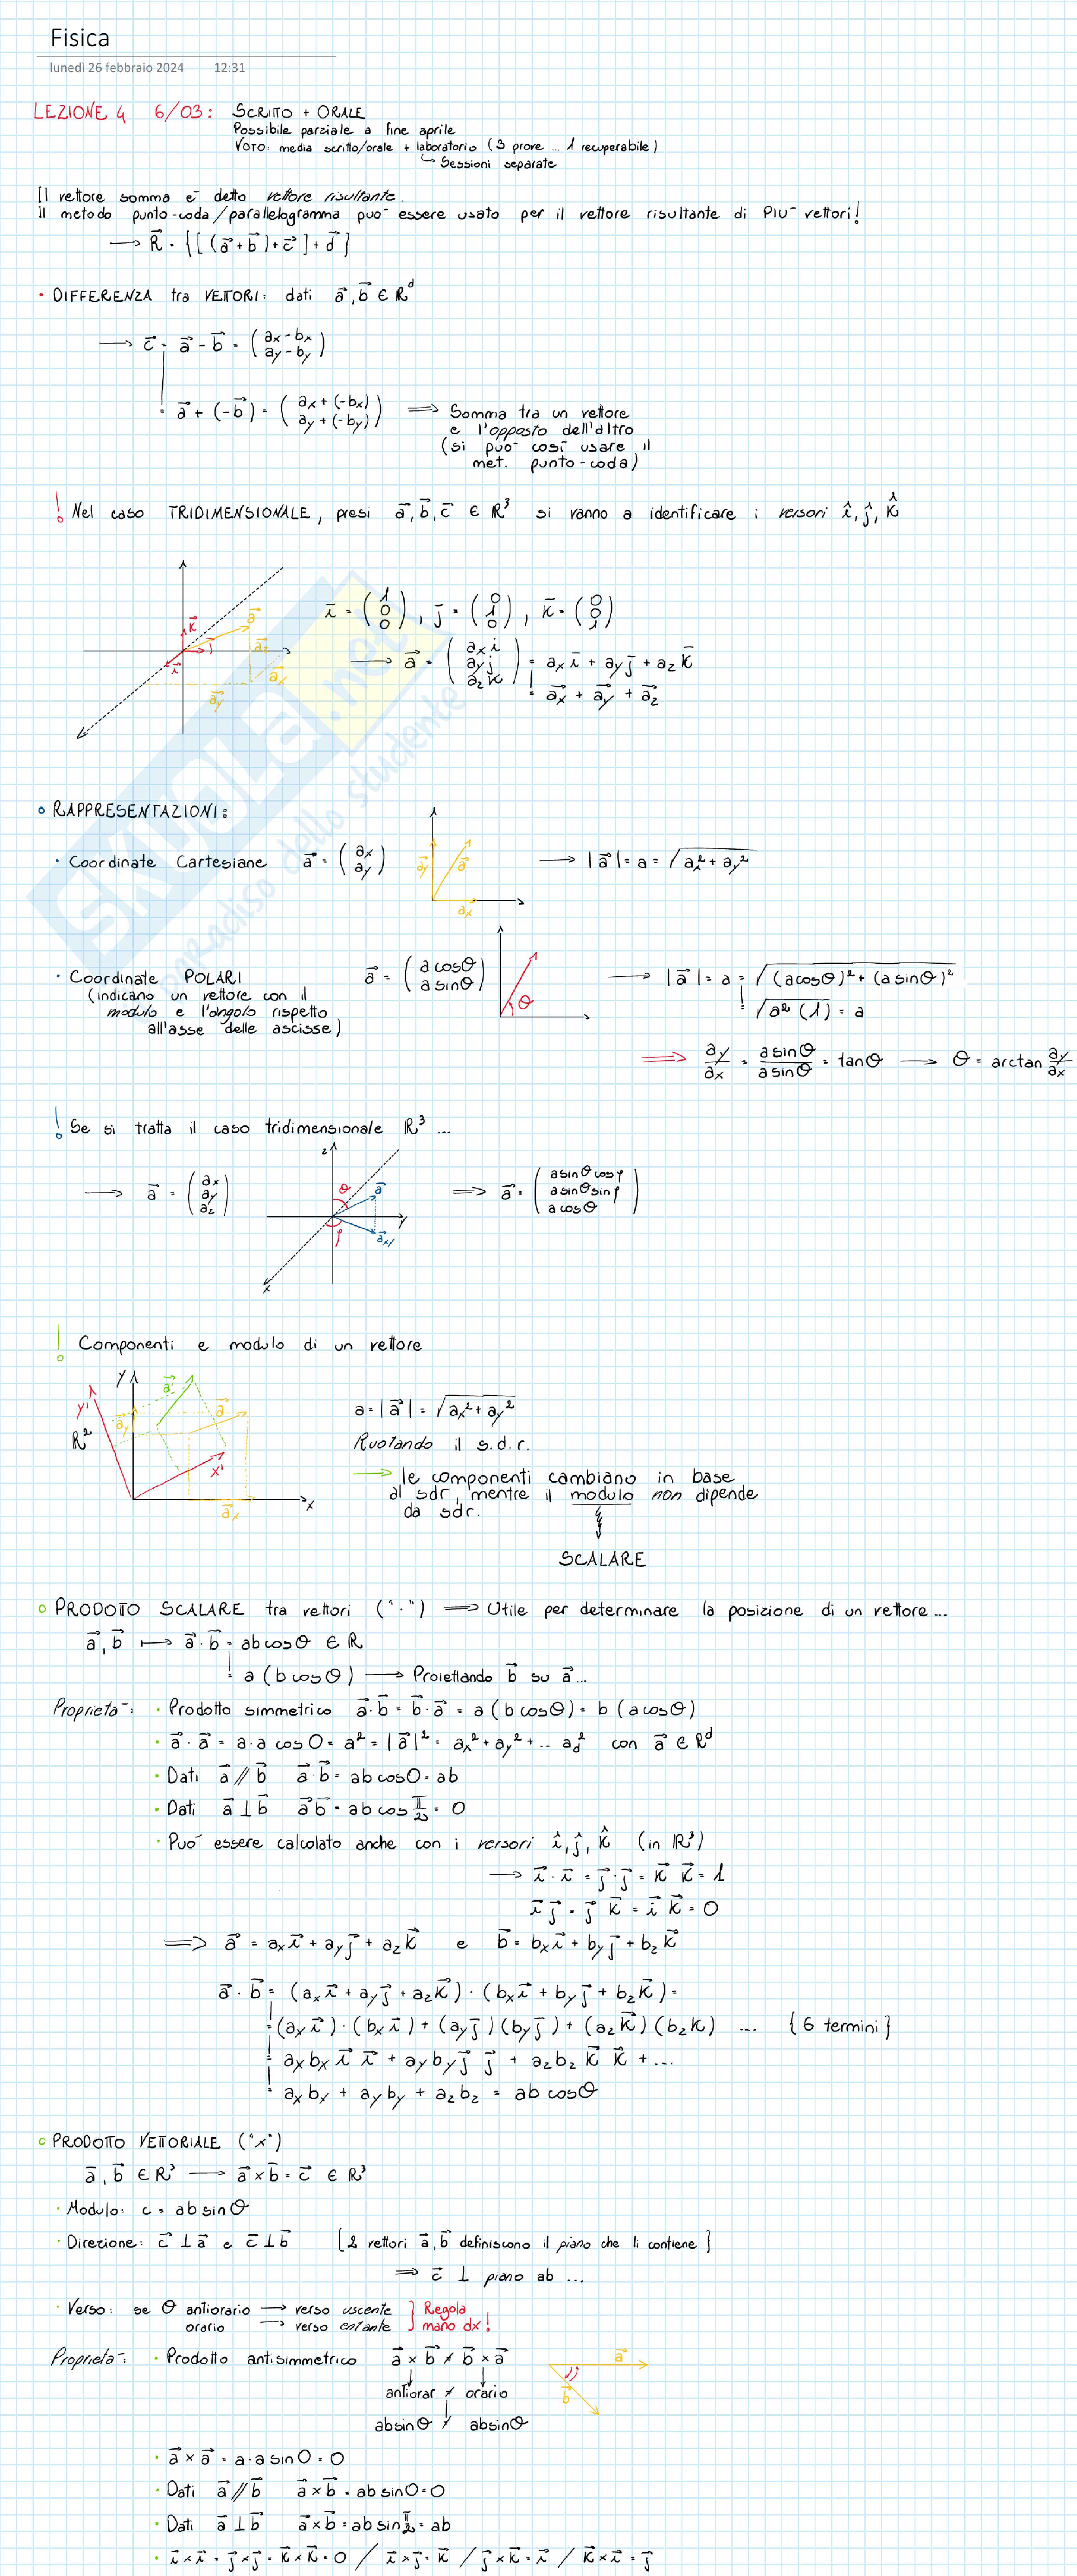 Fisica
lunedì 26 febbraio 2024 12:31
LEZIONE 4 6/03: SCRITTO + ORALE
Possibile parziale a fine aprile
VOTO: media scritto/orale + laboratorio (3 prove ... 1 recuperabile)
↳ Sessioni separate
Il vettore somma è detto vettore risultante.
Il metodo punto-coda/parallelogramma può essere usato per il vettore risultante di PIÙ vettori!
→ R⃗ = {[(a⃗+b⃗)+c⃗]+d⃗}
• DIFFERENZA tra VETTORI: dati a⃗, b⃗ ∈ ℝᵈ
→ c⃗ = a⃗ - b⃗ = (ax-bx ay-by)
= a⃗ + (-b⃗) = (ax+(-bx) ay+(-by)) ⇒ Somma tra un vettore
e l'opposto dell'altro
(si può così usare il
met. punto-coda)
! Nel caso TRIDIMENSIONALE, presi a⃗, b⃗, c⃗ ∈ ℝ³ si vanno a identificare i versori î, ĵ, k̂
k⃗ a⃗ j⃗ az i⃗ ax ay
ī = (1 0 0), j̄ = (0 1 0), k̄ = (0 0 1)
→ a⃗ = (axi ayj azk) = ax ī + ay j̄ + az k̄
= a⃗x + a⃗y + a⃗z
SKUOLA.net
paradiso dello studente
° RAPPRESENTAZIONI:
• Coordinate Cartesiane a⃗ = (ax ay) a⃗y a⃗ a⃗x → |a⃗| = a = √(ax²+ay²)
• Coordinate POLARI a⃗ = (a cosθ a sinθ) θ → |a⃗| = a = √((a cosθ)²+(a sinθ)²)
(indicano un vettore con il
modulo e l'angolo rispetto = √(a²(1)) = a
all'asse delle ascisse)
⇒ ay/ax = a sinθ/a sinθ = tanθ → θ = arctan ay/ax
! Se si tratta il caso tridimensionale ℝ³ ...
→ a⃗ = (ax ay az) z θ a⃗ y φ a⃗xy x ⇒ a⃗ = (a sinθ cosφ a sinθ sinφ a cosθ)
! Componenti e modulo di un vettore
y a⃗' y' a⃗y a⃗ ℝ² x' x a⃗x
a = |a⃗| = √(ax²+ay²)
Ruotando il s.d.r.
→ le componenti cambiano in base
al sdr, mentre il modulo non dipende
da sdr.
SCALARE
° PRODOTTO SCALARE tra vettori ("·") ⇒ Utile per determinare la posizione di un vettore...
a⃗, b⃗ ↦ a⃗·b⃗ = ab cosθ ∈ ℝ
= a(b cosθ) → Proiettando b⃗ su a⃗...
Proprietà: • Prodotto simmetrico a⃗·b⃗ = b⃗·a⃗ = a(b cosθ) = b(a cosθ)
• a⃗·a⃗ = a·a cos0 = a² = |a⃗|² = ax²+ay²+... ad² con a⃗ ∈ ℝᵈ
• Dati a⃗ // b⃗ a⃗·b⃗ = ab cos0 = ab
• Dati a⃗ ⊥ b⃗ a⃗ b⃗ = ab cos π/2 = 0
• Può essere calcolato anche con i versori î, ĵ, k̂ (in ℝ³)
→ i⃗·i⃗ = j⃗·j⃗ = k⃗ k⃗ = 1
i⃗ j⃗ = j⃗ k⃗ = i⃗ k⃗ = 0
⇒ a⃗ = ax i⃗ + ay j⃗ + az k⃗ e b⃗ = bx i⃗ + by j⃗ + bz k⃗
a⃗·b⃗ = (ax i⃗ + ay j⃗ + az k⃗)·(bx i⃗ + by j⃗ + bz k⃗) =
= (ax i⃗)·(bx i⃗) + (ay j⃗)(by j⃗) + (az k⃗)(bz k) ... {6 termini}
= axbx i⃗ i⃗ + ayby j⃗ j⃗ + azbz k⃗ k⃗ + ...
= axbx + ayby + azbz = ab cosθ
° PRODOTTO VETTORIALE ("×")
a⃗, b⃗ ∈ ℝ³ → a⃗×b⃗ = c⃗ ∈ ℝ³
• Modulo: c = ab sinθ
• Direzione: c⃗ ⊥ a⃗ e c⃗ ⊥ b⃗ {2 vettori a⃗, b⃗ definiscono il piano che li contiene}
⇒ c⃗ ⊥ piano ab ...
• Verso: se θ antiorario → verso uscente } Regola
orario → verso entante } mano dx!
Proprietà: • Prodotto antisimmetrico a⃗×b⃗ ≠ b⃗×a⃗ a⃗ b⃗
antiorar. ≠ orario
absinθ ≠ absinθ
• a⃗×a⃗ = a·a sin0 = 0
• Dati a⃗ // b⃗ a⃗×b⃗ = ab sin0 = 0
• Dati a⃗ ⊥ b⃗ a⃗×b⃗ = ab sin π/2 = ab
• i⃗×i⃗ = j⃗×j⃗ = k⃗×k⃗ = 0 / i⃗×j⃗ = k⃗ / j⃗×k⃗ = i⃗ / k⃗×i⃗ = j⃗